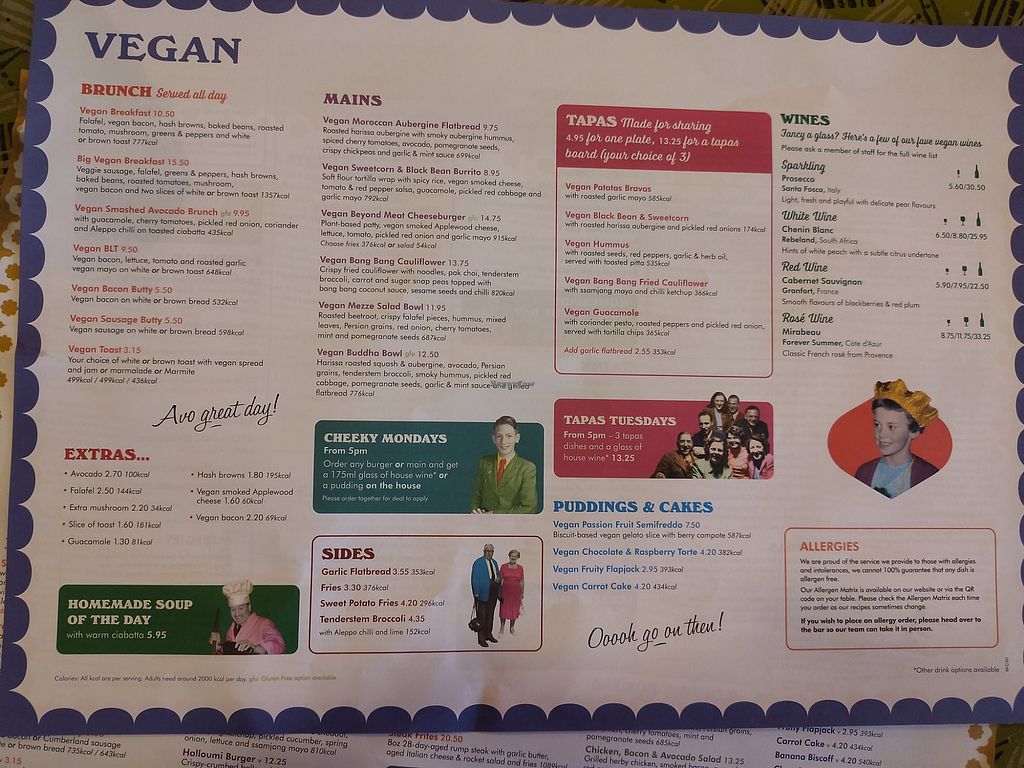 VEGAN
BRUNCH Served all day
Vegan Breakfast 10.50
Falafel, vegan bacon, hash browns, baked beans, roasted
tomato, mushroom, greens & peppers and white
or brown toast 777kcal
Big Vegan Breakfast 15.50
Veggie sausage, falafel, greens & peppers, hash browns,
baked beans, roasted tomatoes, mushroom,
vegan bacon and two slices of white or brown toast 1357kcal
Vegan Smashed Avocado Brunch gfo 9.95
with guacamole, cherry tomatoes, pickled red onion, coriander
and Aleppo chilli on toasted ciabatta 435kcal
Vegan BLT 9.50
Vegan bacon, lettuce, tomato and roasted garlic
vegan mayo on white or brown toast 648kcal
Vegan Bacon Butty 5.50
Vegan bacon on white or brown bread 532kcal
Vegan Sausage Butty 5.50
Vegan sausage on white or brown bread 598kcal
Vegan Toast 3.15
Your choice of white or brown toast with vegan spread
and jam or marmalade or Marmite
499kcal / 499kcal / 436kcal
Avo great day!
EXTRAS...
• Avocado 2.70 100kcal
• Falafel 2.50 144kcal
• Extra mushroom 2.20 34kcal
• Slice of toast 1.60 181kcal
• Guacamole 1.30 81kcal
• Hash browns 1.80 195kcal
• Vegan smoked Applewood
cheese 1.60 60kcal
• Vegan bacon 2.20 69kcal
HOMEMADE SOUP
OF THE DAY
with warm ciabatta 5.95
Calories: All kcal are per serving. Adults need around 2000 kcal per day. gfo: Gluten Free option available
MAINS
Vegan Moroccan Aubergine Flatbread 9.75
Roasted harissa aubergine with smoky aubergine hummus,
spiced cherry tomatoes, avocado, pomegranate seeds,
crispy chickpeas and garlic & mint sauce 699kcal
Vegan Sweetcorn & Black Bean Burrito 8.95
Soft flour tortilla wrap with spicy rice, vegan smoked cheese,
tomato & red pepper salsa, guacamole, pickled red cabbage and
garlic mayo 792kcal
Vegan Beyond Meat Cheeseburger gfo 14.75
Plant-based patty, vegan smoked Applewood cheese,
lettuce, tomato, pickled red onion and garlic mayo 915kcal
Choose fries 376kcal or salad 54kcal
Vegan Bang Bang Cauliflower 13.75
Crispy fried cauliflower with noodles, pak choi, tenderstem
broccoli, carrot and sugar snap peas topped with
bang bang coconut sauce, sesame seeds and chilli 820kcal
Vegan Mezze Salad Bowl 11.95
Roasted beetroot, crispy falafel pieces, hummus, mixed
leaves, Persian grains, red onion, cherry tomatoes,
mint and pomegranate seeds 687kcal
Vegan Buddha Bowl gfo 12.50
Harissa roasted squash & aubergine, avocado, Persian
grains, tenderstem broccoli, smoky hummus, pickled red
cabbage, pomegranate seeds, garlic & mint sauce and grilled
flatbread 776kcal
CHEEKY MONDAYS
From 5pm
Order any burger or main and get
a 175ml glass of house wine* or
a pudding on the house
Please order together for deal to apply
SIDES
Garlic Flatbread 3.55 353kcal
Fries 3.30 376kcal
Sweet Potato Fries 4.20 296kcal
Tenderstem Broccoli 4.35
with Aleppo chilli and lime 152kcal
TAPAS Made for sharing
4.95 for one plate, 13.25 for a tapas
board (your choice of 3)
Vegan Patatas Bravas
with roasted garlic mayo 585kcal
Vegan Black Bean & Sweetcorn
with roasted harissa aubergine and pickled red onions 174kcal
Vegan Hummus
with roasted seeds, red peppers, garlic & herb oil,
served with toasted pitta 535kcal
Vegan Bang Bang Fried Cauliflower
with ssamjang mayo and chilli ketchup 366kcal
Vegan Guacamole
with coriander pesto, roasted peppers and pickled red onion,
served with tortilla chips 365kcal
Add garlic flatbread 2.55 353kcal
TAPAS TUESDAYS
From 5pm – 3 tapas
dishes and a glass of
house wine* 13.25
PUDDINGS & CAKES
Vegan Passion Fruit Semifreddo 7.50
Biscuit-based vegan gelato slice with berry compote 587kcal
Vegan Chocolate & Raspberry Torte 4.20 382kcal
Vegan Fruity Flapjack 2.95 393kcal
Vegan Carrot Cake 4.20 434kcal
Ooooh go on then!
WINES
Fancy a glass? Here's a few of our fave vegan wines
Please ask a member of staff for the full wine list
Sparkling
Prosecco
Santa Fosca, Italy 5.60/30.50
Light, fresh and playful with delicate pear flavours
White Wine
Chenin Blanc
Rebeland, South Africa 6.50/8.80/25.95
Hints of white peach with a subtle citrus undertone
Red Wine
Cabernet Sauvignon
Granfort, France 5.90/7.95/22.50
Smooth flavours of blackberries & red plum
Rosé Wine
Mirabeau 8.75/11.75/33.25
Forever Summer, Côte d'Azur
Classic French rosé from Provence
ALLERGIES
We are proud of the service we provide to those with allergies
and intolerances, we cannot 100% guarantee that any dish is
allergen free.
Our Allergen Matrix is available on our website or via the QR
code on your table. Please check the Allergen Matrix each time
you order as our recipes sometimes change.
If you wish to place an allergy order, please head over to
the bar so our team can take it in person.
*Other drink options available
or Cumberland sausage
te or brown bread 735kcal / 643kcal
3.15
pickled cucumber, spring
onion, lettuce and ssamjang mayo 810kcal
Halloumi Burger v 12.25
Steak Frites 20.50
8oz 28-day-aged rump steak with garlic butter,
aged Italian cheese & rocket salad and fries 1089kcal
grains,
cherry tomatoes, mint and
pomegranate seeds 685kcal
Chicken, Bacon & Avocado Salad 13.25
Fruity Flapjack v 2.95 393kcal
Carrot Cake v 4.20 434kcal
Banana Biscoff v 4.20 540kcal